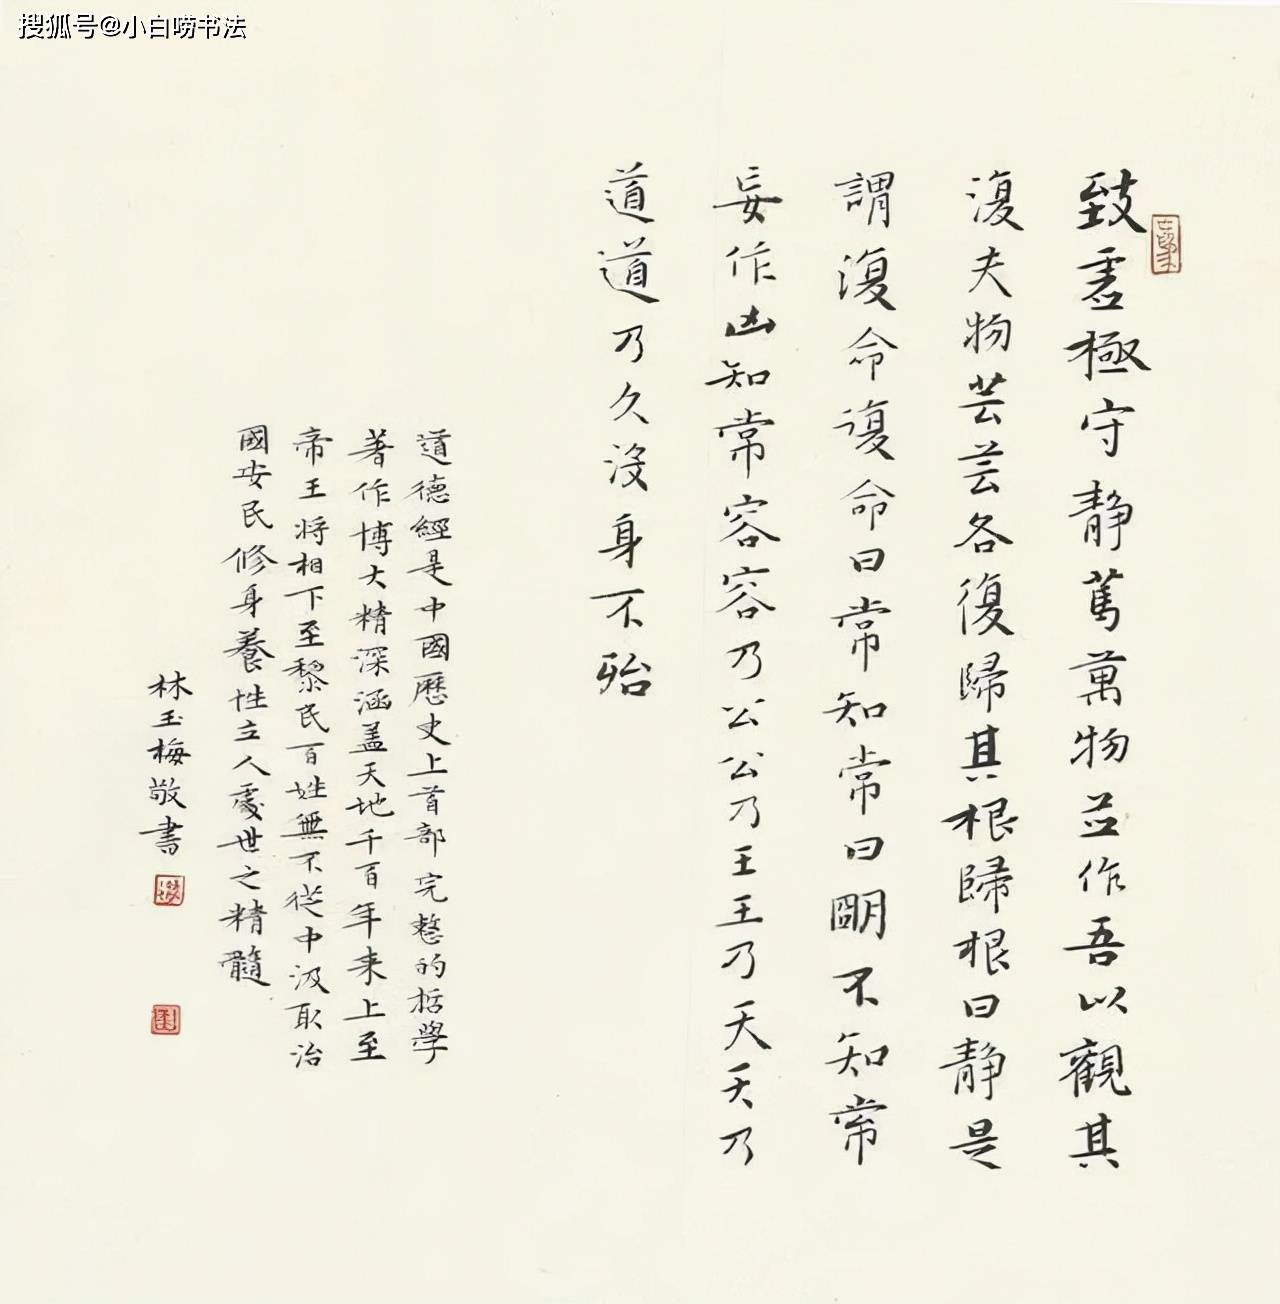 搜狐号@小白唠书法
致虛極守靜篤萬物並作吾以觀其
復夫物芸芸各復歸其根歸根曰靜是
謂復命復命曰常知常曰朙不知常
妄作凶知常容容乃公公乃王王乃天天乃
道道乃久沒身不殆
道德經是中國歷史上首部完整的哲學
著作博大精深涵盖天地千百年来上至
帝王將相下至黎民百姓無不從中汲取治
國安民修身養性立人處世之精髓
林玉梅敬書